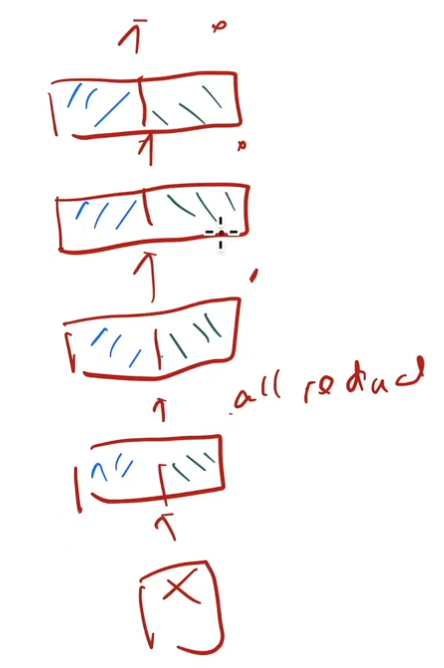 all reduce
X